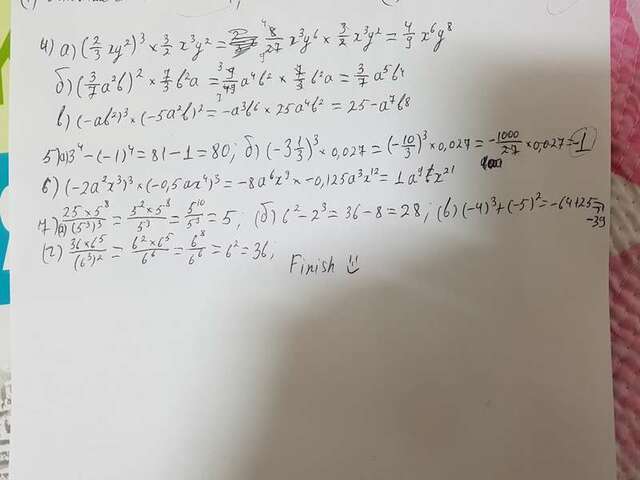 4) а) (2/3 xy²)³ × 3/2 x³y² = 8/27 x³y⁶ × 3/2 x³y² = 4/9 x⁶y⁸
б) (3/7 a²b)² × 7/3 b²a = 9/49 a⁴b² × 7/3 b²a = 3/7 a⁵b⁴
в) (-ab²)³ × (-5a²b)² = -a³b⁶ × 25a⁴b² = 25-a⁷b⁸
5) а) 3⁴ - (-1)⁴ = 81 - 1 = 80; б) (-3 1/3)³ × 0,027 = (-10/3)³ × 0,027 = -1000/27 × 0,027 = -1
6) (-2a²x³)³ × (-0,5ax⁴)³ = -8a⁶x⁹ × -0,125a³x¹² = 1a⁹x²¹
7) а) 25×5⁸/(5³)³ = 5²×5⁸/5⁹ = 5¹⁰/5⁹ = 5; (б) 6² - 2³ = 36 - 8 = 28; (в) (-4)³ + (-5)² = -64 + 25 =
-39
(г) 36×6⁵/(6³)² = 6²×6⁵/6⁶ = 6⁸/6⁶ = 6² = 36;
Finish